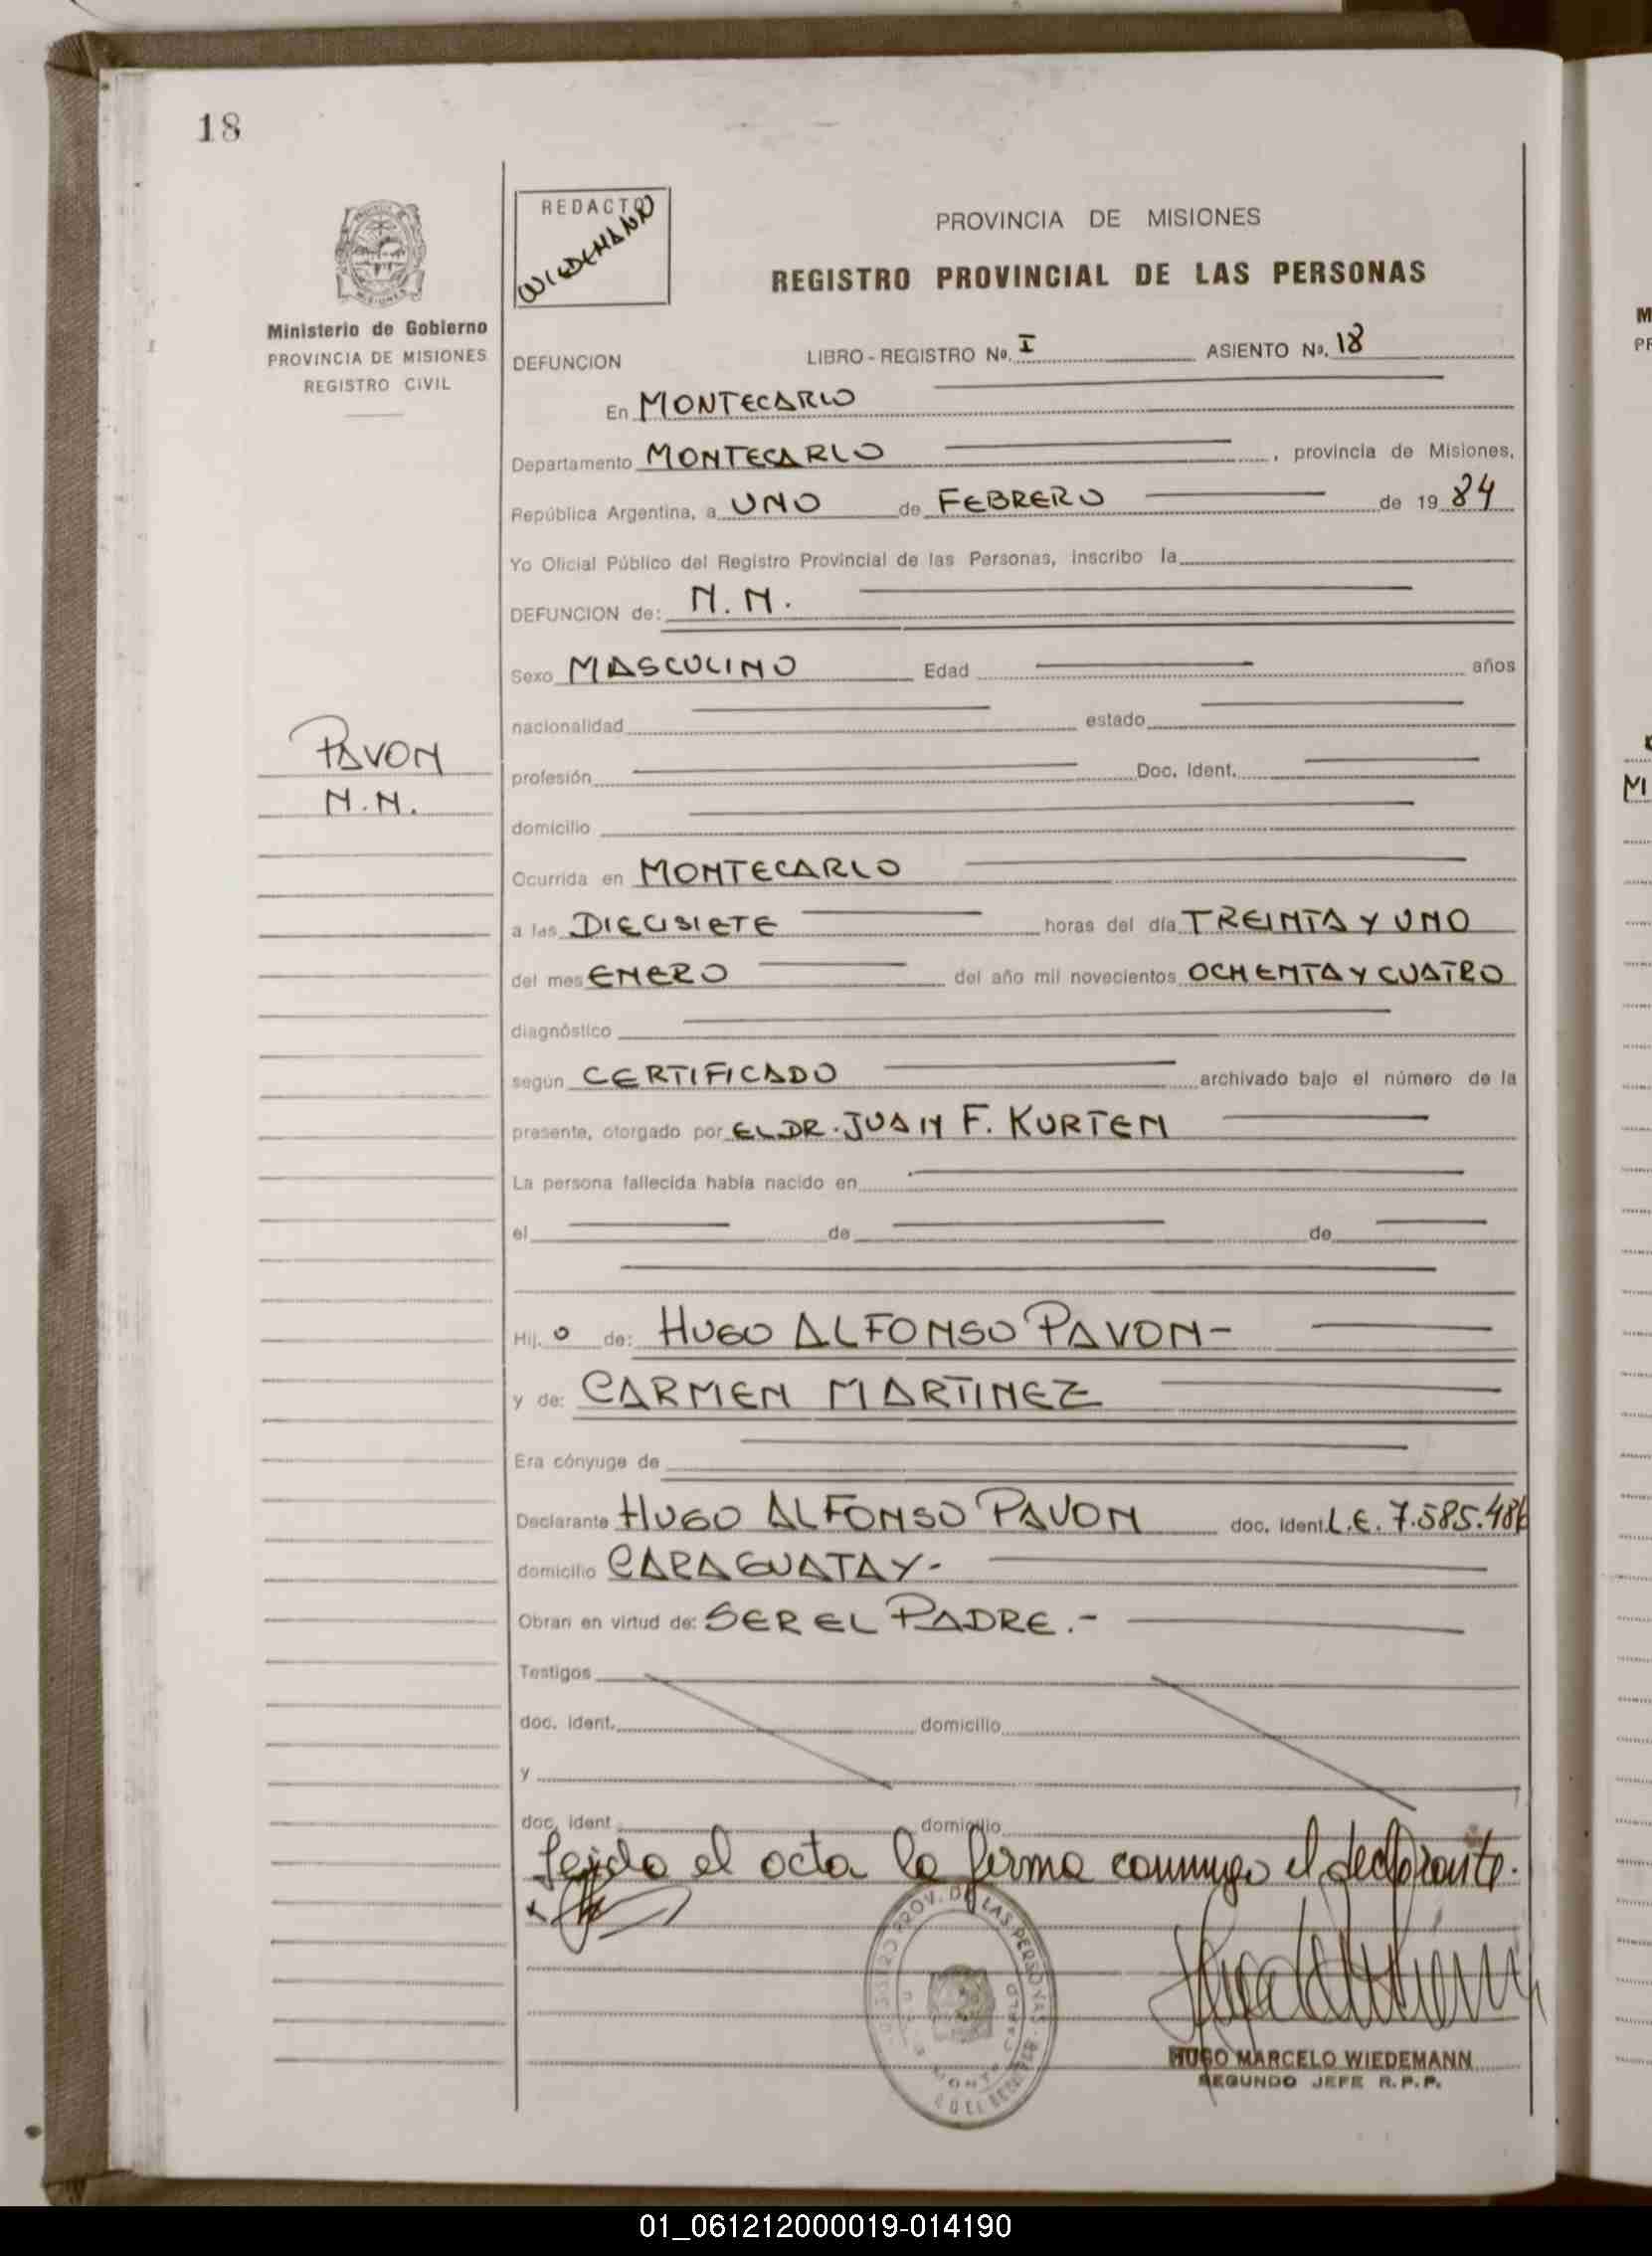 18
REDACTO
WIEDEMANN
PROVINCIA DE MISIONES
REGISTRO PROVINCIAL DE LAS PERSONAS
Ministerio de Gobierno
PROVINCIA DE MISIONES
REGISTRO CIVIL
DEFUNCION LIBRO - REGISTRO Nº. I ASIENTO Nº. 18
En MONTECARLO
Departamento MONTECARLO, provincia de Misiones,
República Argentina, a UNO de FEBRERO de 1984
Yo Oficial Público del Registro Provincial de las Personas, inscribo la
DEFUNCION de: N.N.
Sexo MASCULINO Edad años
nacionalidad estado
PAVON
N.N.
profesión Doc. Ident.
domicilio
Ocurrida en MONTECARLO
a las DIECISIETE horas del día TREINTA Y UNO
del mes ENERO del año mil novecientos OCHENTA Y CUATRO
diagnóstico
según CERTIFICADO archivado bajo el número de la
presente, otorgado por EL DR. JUAN F. KURTEN
La persona fallecida había nacido en
el de de
Hij. o de: HUGO ALFONSO PAVON-
y de: CARMEN MARTINEZ
Era cónyuge de
Declarante HUGO ALFONSO PAVON doc. Ident. L.E. 7.585.486
domicilio CARAGUATAY-
Obran en virtud de: SER EL PADRE.-
Testigos
doc. ident. domicilio
y
doc. ident domicilio
Leida el acta la firma conmigo el declarante.
HUGO MARCELO WIEDEMANN
SEGUNDO JEFE R.P.P.
01_061212000019-014190